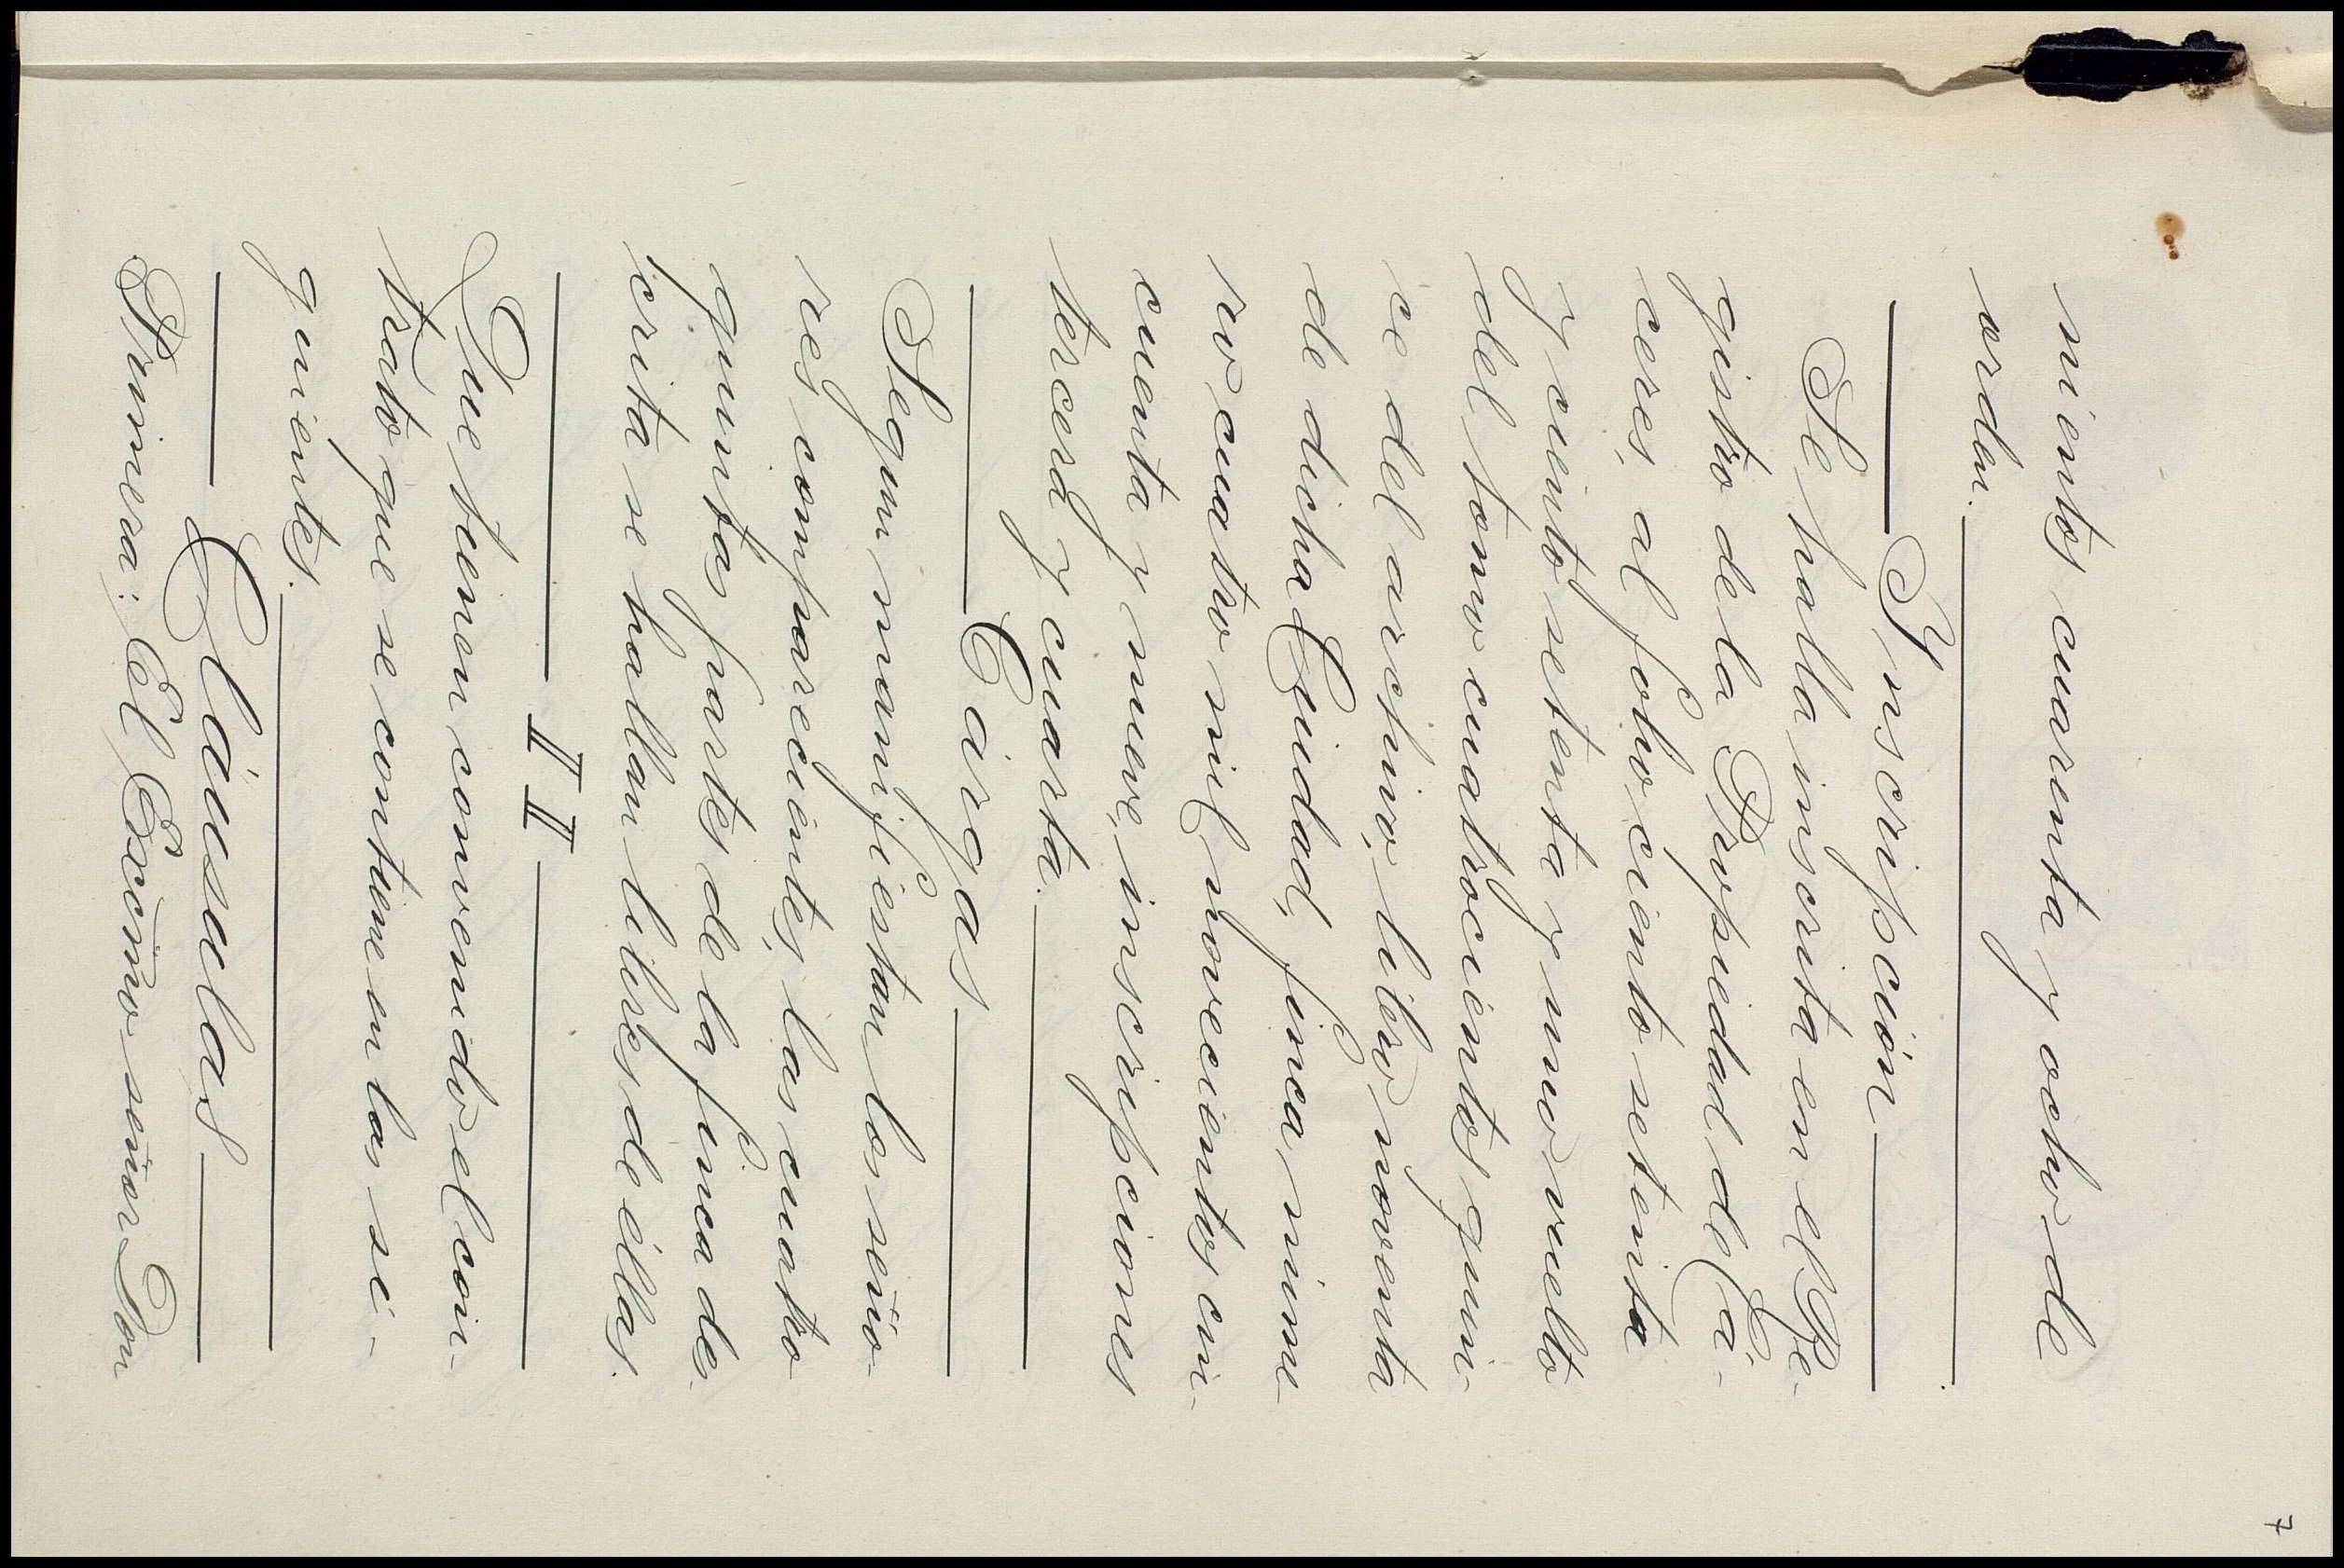 7
mientos cuarenta y ocho de
orden.
Ynscripción
Se halla inscrita en el Re-
gistro de la Propiedad de Cá-
ceres, al folio ciento setenta
y ciento setenta y nueve vuelto
del tomo cuatrocientos quin-
ce del archivo, libro noventa
de dicha Ciudad, finca núme-
ro cuatro mil novecientos cin-
cuenta y nueve, inscripciones
tercera y cuarta.
Cargas
Segun manifiestan los seño-
res comparecientes, las cuatro
quintas partes de la finca des-
crita se hallan libres de éllas.
II
Que tienen convenido el con-
trato que se contiene en las si-
guientes.
Cláusulas
Primera: El Excmo señor Don